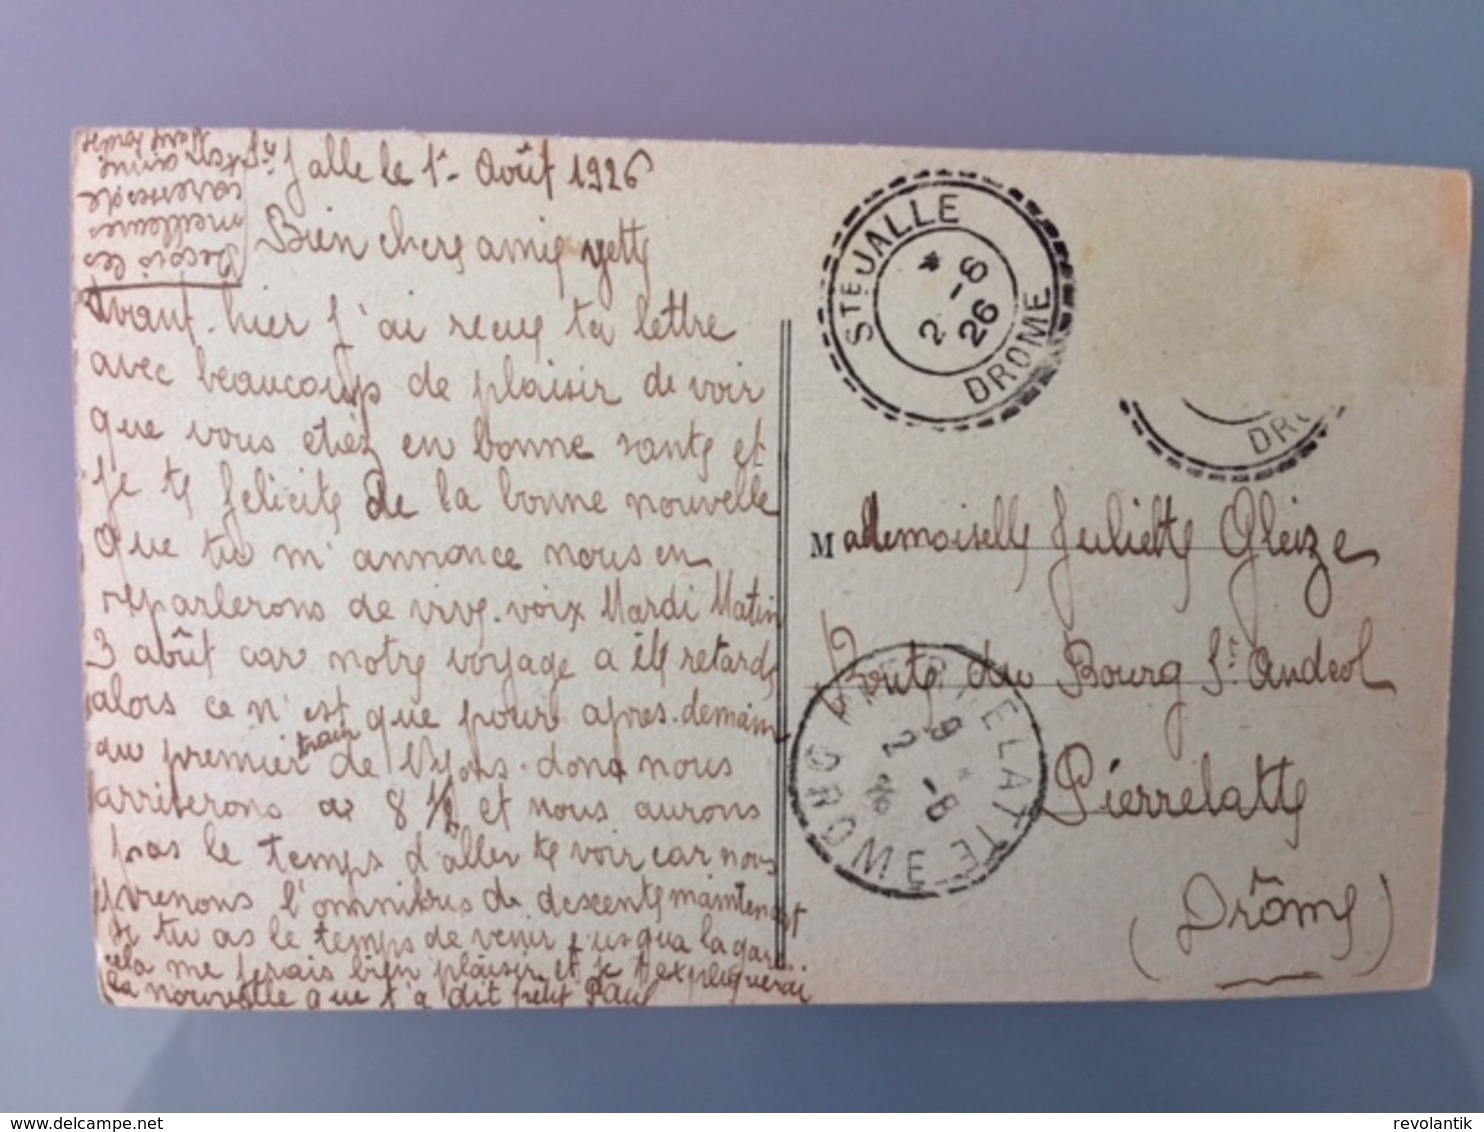 Ste Jalle le 1er Août 1926
Bien chere amie yette
Avant-hier j'ai recue ta lettre
avec beaucoup de plaisir de voir
que vous etiez en bonne sante et
je te felicite de la bonne nouvelle
que tu m'annonce nous en
reparlerons de vive-voix Mardi Matin
3 août car notre voyage a été retarde
alors ce n'est que pour apres-demain
du premier train de Nyons-donc nous
arriverons a 8 ½ et nous aurons
pas le temps d'aller te voir car nous
prenons l'omnibus de descente maintenant
si tu as le temps de venir jusqua la gare
cela me ferais bien plaisir et je t'expliquerai
la nouvelle que t'a dit petit Paul
Recois les
meilleures
caresses de
ton amie
STE JALLE
* 2-6
26
DROME
DRO
Mademoiselle Juliette Gleize
Route du Bourg St Andeol
Pierrelatte
(Drôme)
PIERRELATTE
9 *
2 -8
26
DROME
revolantik